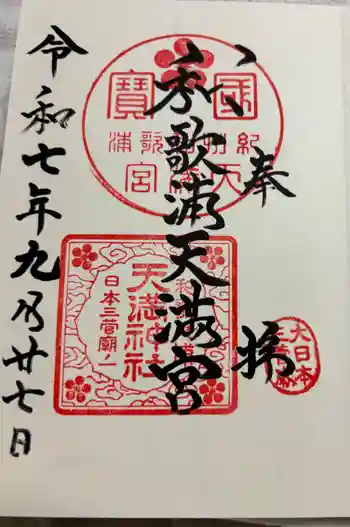 奉拝
和歌浦天満宮
令和七年九月廿七日
國寶
紀州和歌浦天満宮
和歌浦
天満神社
日本三菅廟ノ一
大日本
三菅廟